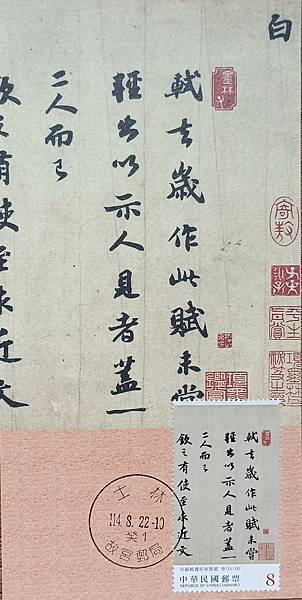 白
軾去歲作此賦未嘗
輕出以示人見者蓋一
二人而已
欽之有使至求近文
墨林
士林
114.8.22-10
癸1
故宮郵局
軾去歲作此賦未嘗
輕出以示人見者蓋一
二人而已
欽之有使至求近文
中華民國郵票
8